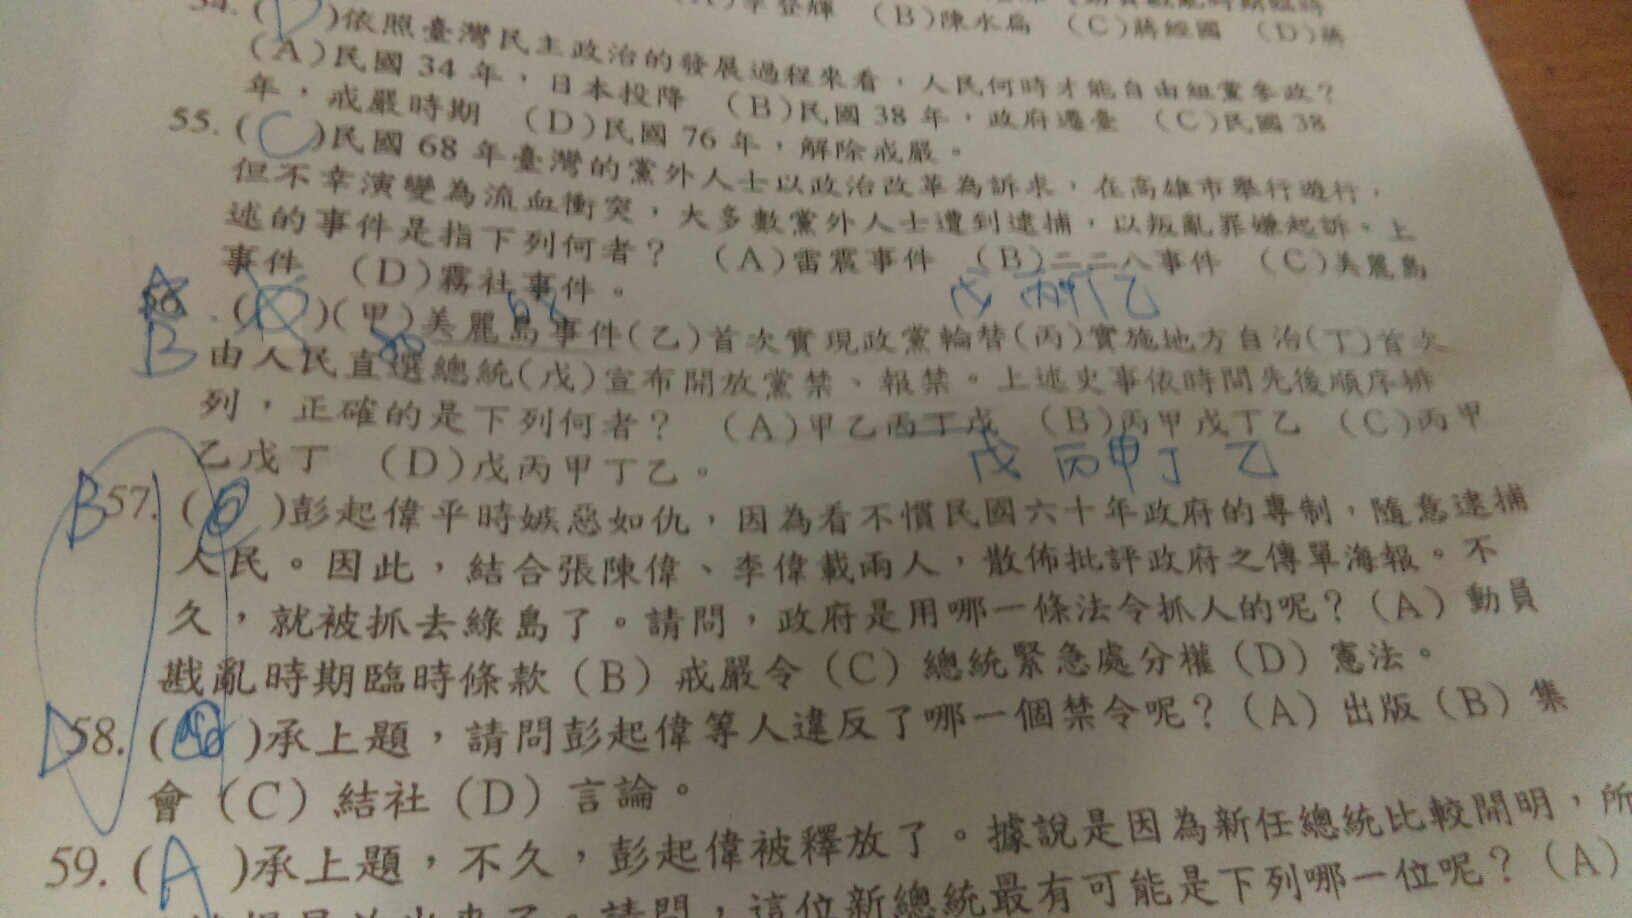 (A)李登輝 (B)陳水扁 (C)蔣經國 (D)蔣
54. (D)依照臺灣民主政治的發展過程來看，人民何時才能自由組黨參政？
(A)民國34年，日本投降 (B)民國38年，政府遷臺 (C)民國38
年，戒嚴時期 (D)民國76年，解除戒嚴。
55. (C)民國68年臺灣的黨外人士以政治改革為訴求，在高雄市舉行遊行，
但不幸演變為流血衝突，大多數黨外人士遭到逮捕，以叛亂罪嫌起訴。上
述的事件是指下列何者？ (A)雷震事件 (B)二二八事件 (C)美麗島
事件 (D)霧社事件。
戊 丙 甲 乙
56. ( )(甲)美麗島事件(乙)首次實現政黨輪替(丙)實施地方自治(丁)首次
B
由人民直選總統(戊)宣布開放黨禁、報禁。上述史事依時間先後順序排
列，正確的是下列何者？ (A)甲乙丙丁戊 (B)丙甲戊丁乙 (C)丙甲
乙戊丁 (D)戊丙甲丁乙。
戊 丙甲丁 乙
B 57. ( )彭起偉平時嫉惡如仇，因為看不慣民國六十年政府的專制，隨意逮捕
人民。因此，結合張陳偉、李偉載兩人，散佈批評政府之傳單海報。不
久，就被抓去綠島了。請問，政府是用哪一條法令抓人的呢？(A) 動員
戡亂時期臨時條款 (B) 戒嚴令 (C) 總統緊急處分權 (D) 憲法。
D 58. ( )承上題，請問彭起偉等人違反了哪一個禁令呢？(A) 出版 (B) 集
會 (C) 結社 (D) 言論。
59. (A)承上題，不久，彭起偉被釋放了。據說是因為新任總統比較開明，所
請問，這位新總統最有可能是下列哪一位呢？(A)